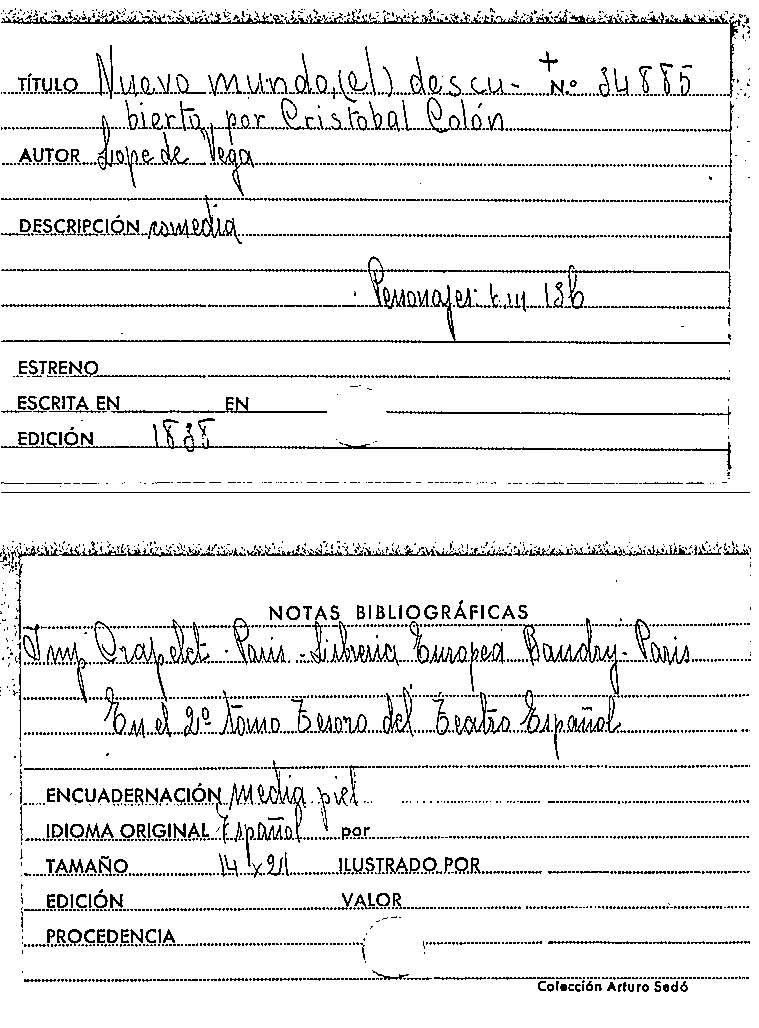 TÍTULO Nuevo mundo,(el) descu- + N.º 34885
bierto por Cristobal Colón
AUTOR Lope de Vega
DESCRIPCIÓN comedia
Personajes:
ESTRENO
ESCRITA EN EN
EDICIÓN 1838
NOTAS BIBLIOGRÁFICAS
Imp Crapelet - Paris - Libreria Europea Baudry - Paris
En el 2º tomo Tesoro del Teatro Español
ENCUADERNACIÓN media piel
IDIOMA ORIGINAL Español por
TAMAÑO 14 x 21 ILUSTRADO POR
EDICIÓN VALOR
PROCEDENCIA
Colección Arturo Sedó